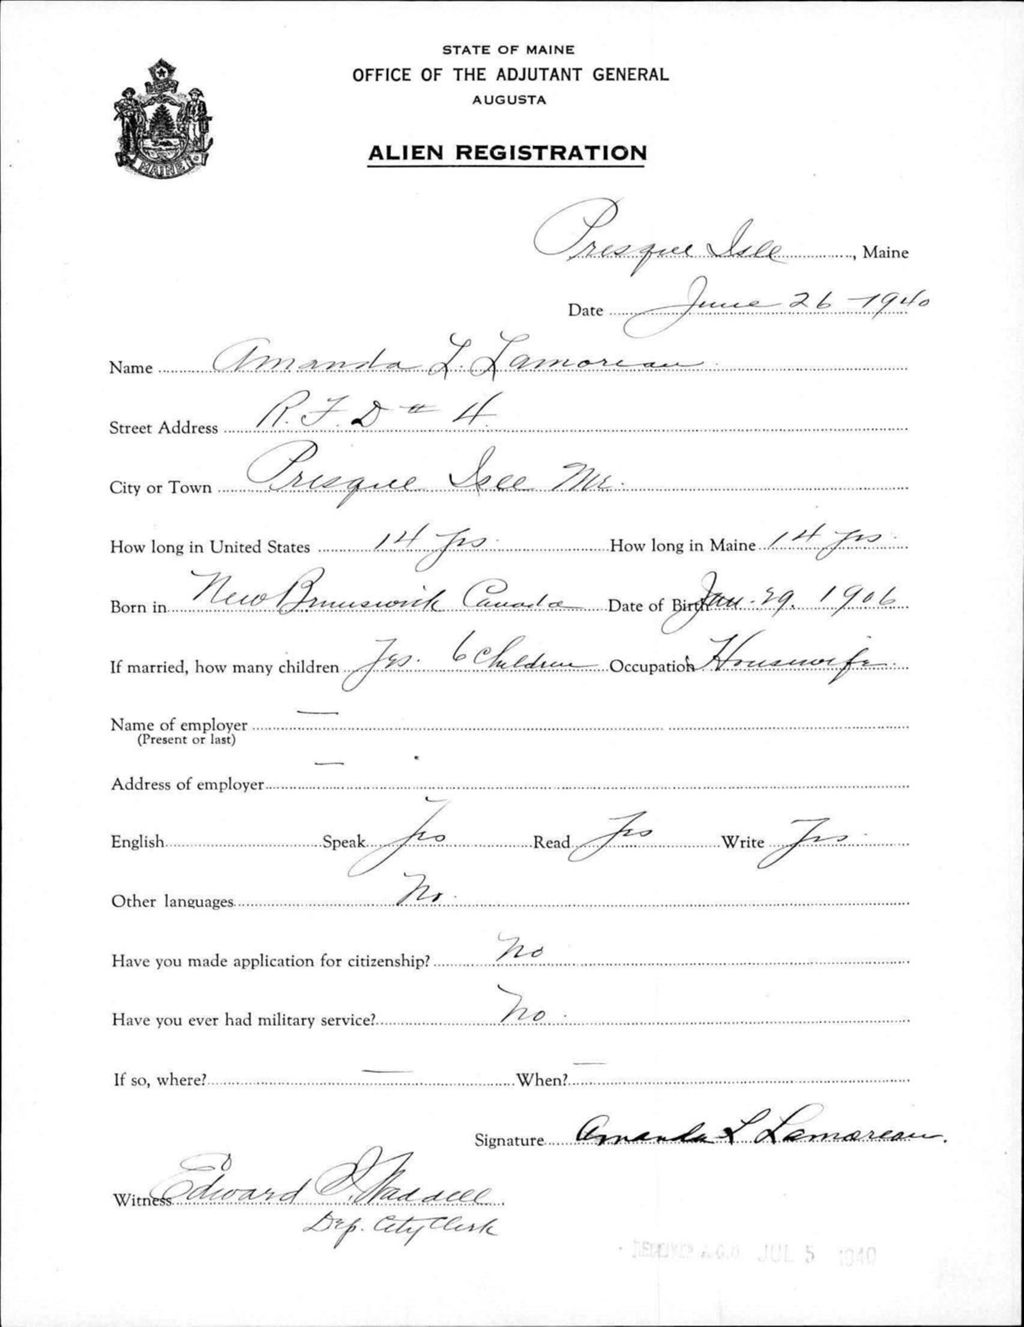 STATE OF MAINE
OFFICE OF THE ADJUTANT GENERAL
AUGUSTA
ALIEN REGISTRATION
MAINE
Presque Isle, Maine
Date June 26 - 1940
Name Amanda L. Lamoreau
Street Address R. F. D # 4
City or Town Presque Isle Me.
How long in United States 14 yrs. How long in Maine 14 yrs.
Born in New Brunswick Canada Date of Birth Jan. 29, 1906
If married, how many children Yes. 6 Children Occupation Housewife
Name of employer —
(Present or last)
Address of employer —
English Speak Yes Read Yes Write Yes
Other languages No.
Have you made application for citizenship? No
Have you ever had military service? No
If so, where? — When? —
Signature Amanda L Lamoreau.
Witness Edward I. Waddell
Dep. City Clerk
RECEIVED A.G.O. JUL 5 1940